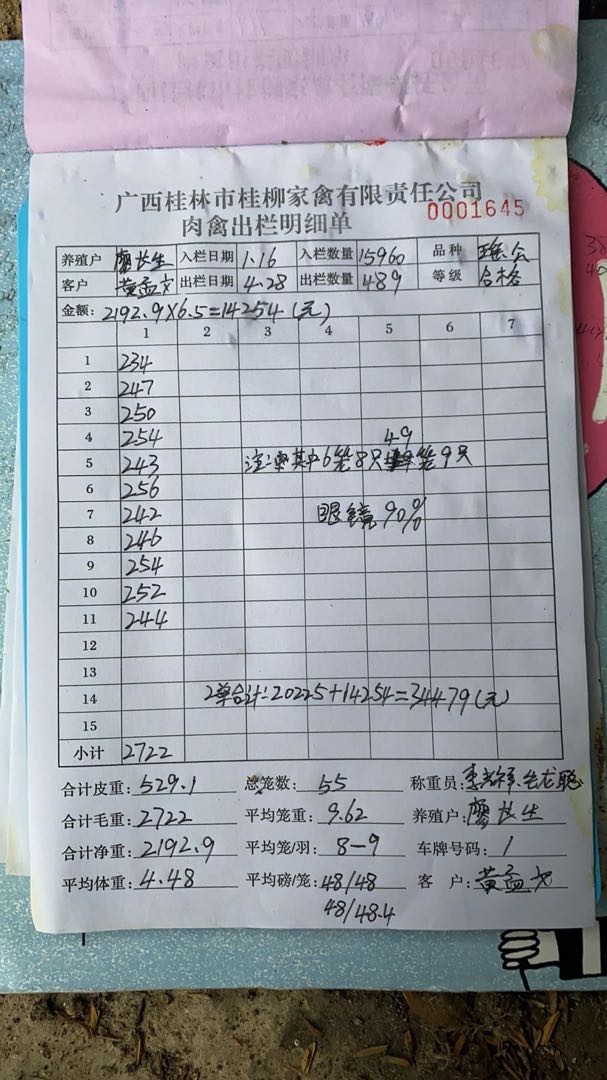 广西桂林市桂柳家禽有限责任公司
肉禽出栏明细单
0001645
养殖户 廖长生 入栏日期 1.16 入栏数量 15960 品种 瑶公
客户 黄孟文 出栏日期 4.28 出栏数量 489 等级 合格
金额: 2192.9X6.5=14254(元)
1 2 3 4 5 6 7
1 234
2 247
3 250
4 254 49
5 243 注:其中6笼8只 笼9只
6 256
7 242 眼镜90%
8 246
9 254
10 252
11 244
12
13
14 2单合计:20225+14254=34479(元)
15
小计 2722
合计皮重: 529.1 总笼数: 55 称重员: 李 祥 龙
合计毛重: 2722 平均笼重: 9.62 养殖户: 廖长生
合计净重: 2192.9 平均笼/羽: 8-9 车牌号码: 1
平均体重: 4.48 平均磅/笼: 48/48 客 户: 黄孟文
48/48.4